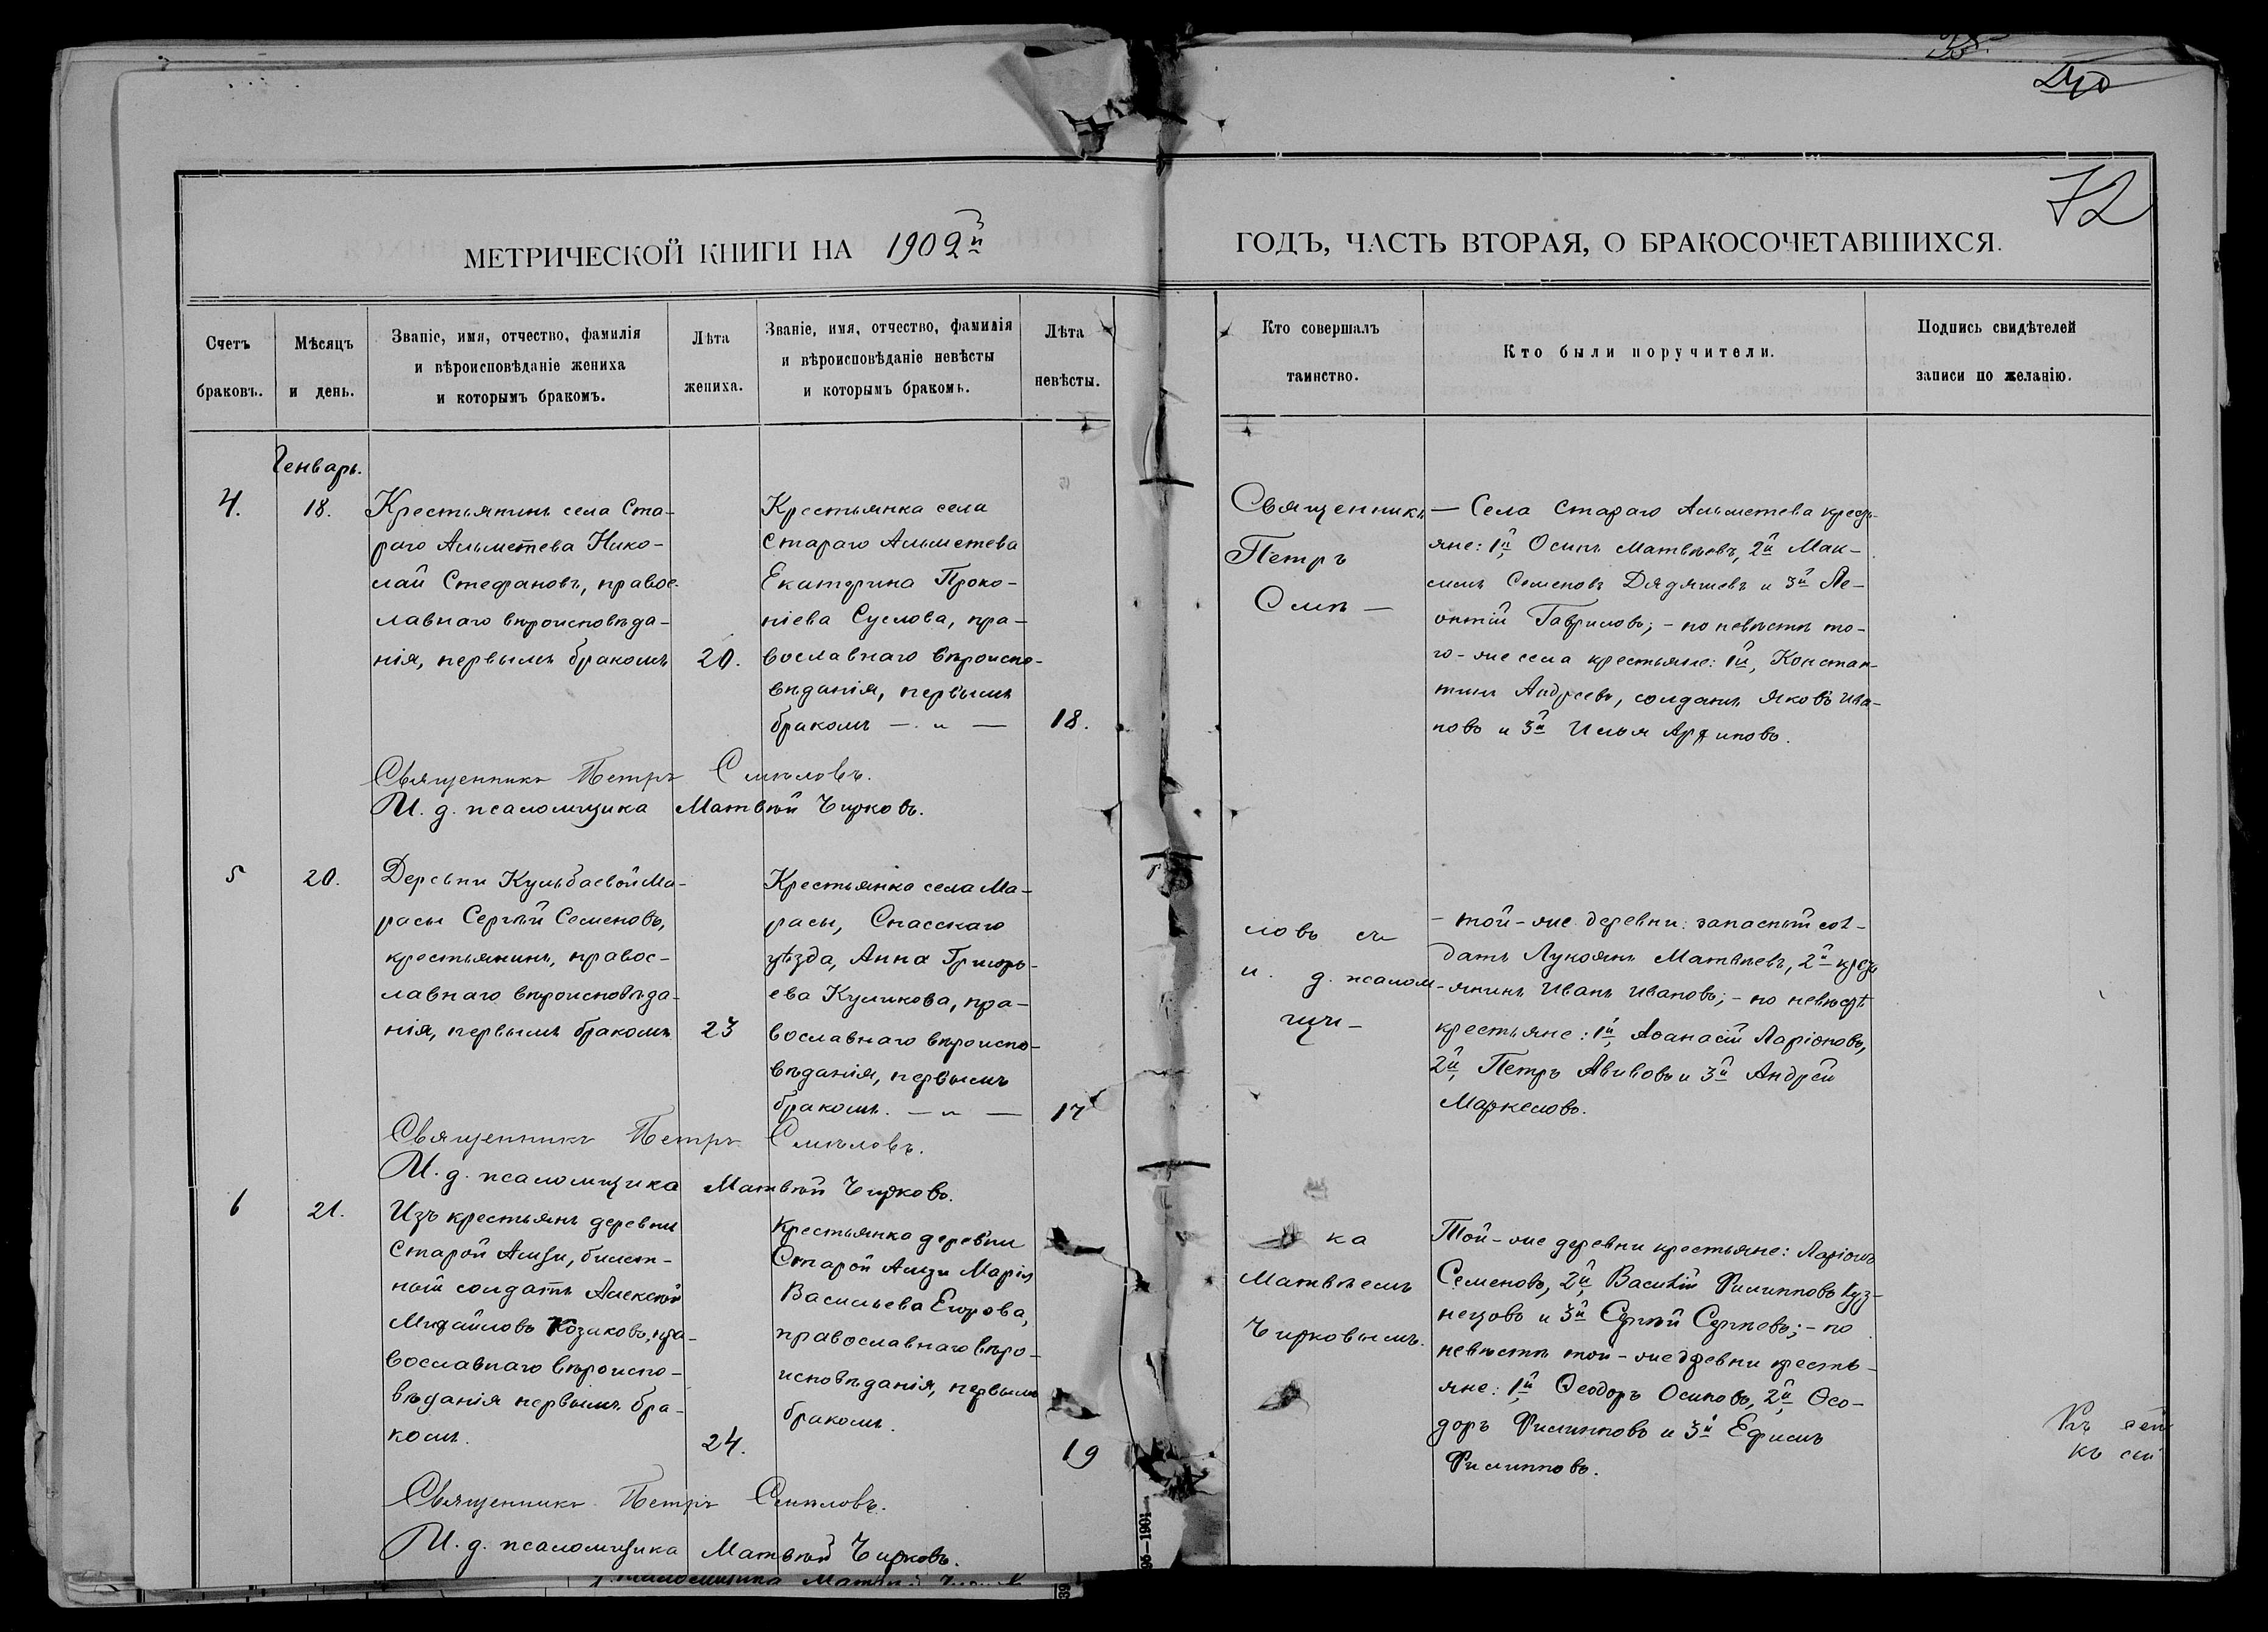 72
МЕТРИЧЕСКОЙ КНИГИ НА 1902й
ГОДЪ, ЧАСТЬ ВТОРАЯ, О БРАКОСОЧЕТАВШИХСЯ.
Счетъ
браковъ.
Мѣсяцъ
и день.
Званіе, имя, отчество, фамилія
и вѣроисповѣданіе жениха
и которымъ бракомъ.
Лѣта
жениха.
Званіе, имя, отчество, фамилія
и вѣроисповѣданіе невѣсты
и которымъ бракомъ.
Лѣта
невѣсты.
Кто совершалъ
таинство.
Кто были поручители.
Подпись свидѣтелей
записи по желанію.
Генварь.
4.
18.
Крестьянинъ села Ста-
раго Альметева Нико-
лай Стефановъ, правос-
лавнаго вѣроисповѣда-
нія, первымъ бракомъ
20.
Крестьянка села
Стараго Альметева
Екатерина Проко-
піева Суслова, пра-
вославнаго вѣроиспо-
вѣданія, первымъ
бракомъ — „ —
18.
Священникъ
Петръ
Смѣ —
— Села Стараго Альметева кресть-
яне: 1й, Осипъ Матвѣевъ, 2й Мак-
симъ Семеновъ Дядяшевъ и 3й Ле-
онтій Гавриловъ; - по невѣстѣ то-
го-же села крестьяне: 1й, Констан-
тинъ Андреевъ, солдатъ Яковъ Ива-
новъ и 3й Илья
Священникъ Петръ Смѣловъ.
И. д. псаломщика Матвѣй Чирковъ.
5
20.
Деревни Кульбаевой Ма-
расы Сергѣй Семеновъ,
крестьянинъ, правос-
лавнаго вѣроисповѣда-
нія, первымъ бракомъ
23
Крестьянка села Ма-
расы, Спасскаго
уѣзда, Анна Григорь-
ева Куликова, пра-
вославнаго вѣроиспо-
вѣданія, первымъ
бракомъ. — „ —
17
ловъ съ
и. д. псалом-
щи-
- той-же деревни: запасный сол-
датъ Лукоянъ Матвѣевъ, 2й кресть-
янинъ Иванъ Ивановъ; - по невѣстѣ
крестьяне: 1й, Аѳанасій Ларіоновъ,
2й, Петръ Авивовъ и 3й Андрей
Маркеловъ.
Священникъ Петръ Смѣловъ.
И. д. псаломщика Матвѣй Чирковъ.
6
21.
Изъ крестьянъ деревни
Старой Амзи, билет-
ный солдатъ Алексѣй
Михайловъ Козаковъ, пра-
вославнаго вѣроиспо-
вѣданія первымъ бра-
комъ.
24.
Крестьянка деревни
Старой Амзи Марія
Васильева Егорова,
православнаго вѣро-
исповѣданія, первымъ
бракомъ.
19
ка
Матвѣемъ
Чирковымъ.
Той-же деревни крестьяне: Ларіонъ
Семеновъ, 2й, Василій Филипповъ Куз-
нецовъ и 3й Сергѣй Сергѣевъ; - по
невѣстѣ той-же деревни кресть-
яне: 1й, Ѳеодоръ Осиповъ, 2й, Ѳео-
доръ Филипповъ и 3й Ефимъ
Филипповъ.
Къ сей
къ сей
Священникъ Петръ Смѣловъ.
И. д. псаломщика Матвѣй Чирковъ.